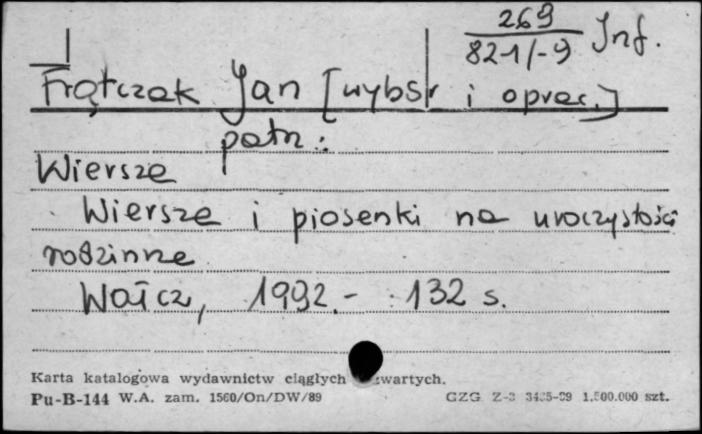 269
82-1/-9 Inf.
Frątczak Jan [wybór i oprac.]
patrz:
Wiersze
Wiersze i piosenki na uroczystości
rodzinne
Wałcz, 1992.- 132 s.
Karta katalogowa wydawnictw ciągłych zwartych.
Pu-B-144 W.A. zam. 1560/On/DW/89 GZG Z-3 1.500.000 szt.